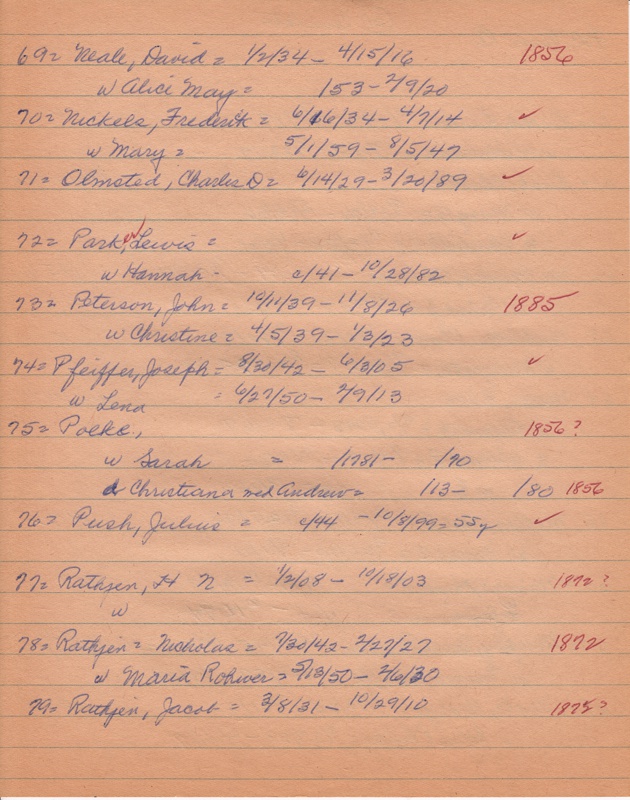 69= Neale, David = 1/2/34 - 4/15/16 1856
w Alice May = /53 - 2/9/20
70= Nickels, Frederik = 6/16/34 - 4/7/14 ✓
w Mary = 5/1/59 - 8/5/47
71= Olmsted, Charles D = 6/14/29 - 3/20/89 ✓
72= Park, Lewis = ✓
w Hannah - c/41 - 10/28/82
73= Peterson, John = 10/11/39 - 11/8/26 1885
w Christine = 4/5/39 - 1/3/23
74= Pfeiffer, Joseph = 8/30/42 - 6/3/05 ✓
w Lena = 6/27/50 - 2/9/13
75= Polke, 1856?
w Sarah = /1781 - /70
d Christiana wed Andrew = /13 - /80 1856
76= Push, Julius = c/44 - 10/8/99 = 55y ✓
77= Rathjen, H N = 1/2/08 - 10/18/03 1872?
w
78= Rathjen = Nicholas = 7/30/42 - 2/27/27 1872
w Maria Rohwer = 5/13/50 - 2/6/30
79= Rathjen, Jacob = 3/8/31 - 10/29/10 1875?